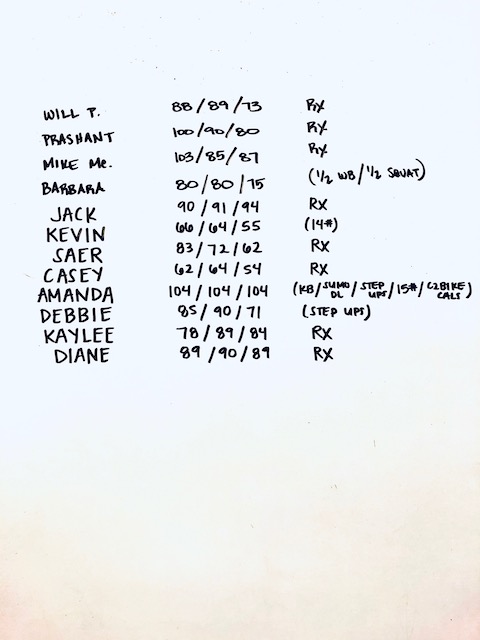 WILL P. 88/89/73 RX
PRASHANT 100/90/80 RX
MIKE Mc. 103/85/87 RX
BARBARA 80/80/75 (1/2 WB/1/2 SQUAT)
JACK 90/91/94 RX
KEVIN 66/64/55 (14#)
SAER 83/72/62 RX
CASEY 62/64/54 RX
AMANDA 104/104/104 (KB/SUMO DL/STEP UPS/15#/C2BIKE CALS)
DEBBIE 85/90/71 (STEP UPS)
KAYLEE 78/89/84 RX
DIANE 89/90/89 RX